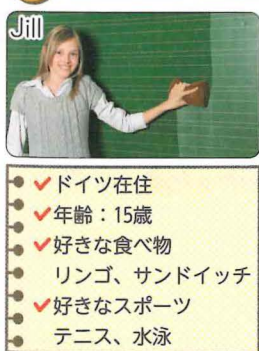 Jill
ドイツ在住
年齢：15歳
好きな食べ物
リンゴ、サンドイッチ
好きなスポーツ
テニス、水泳